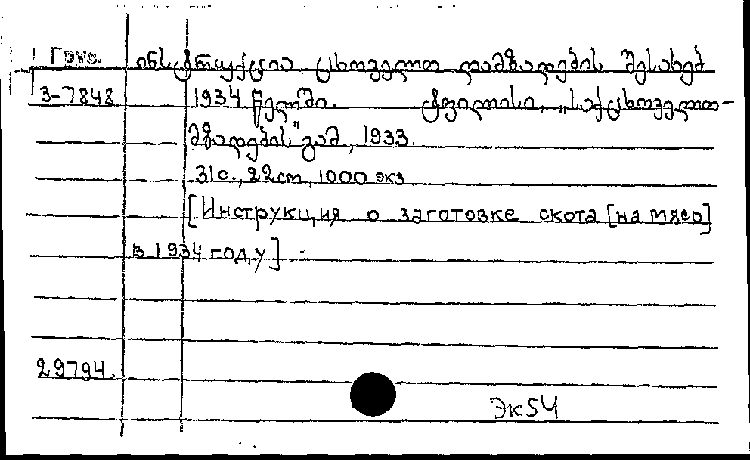 Груз. ინსტრუქცია ცხოველთა დამზადების შესახებ
3-7848 1934 წელში. ტფილისი, „საქცხოველთ-
მზადების" გამ, 1933.
31 с., 22 cm, 1000 экз
[Инструкция о заготовке скота [на мясо]
в 1934 году]
29794.
Эк54